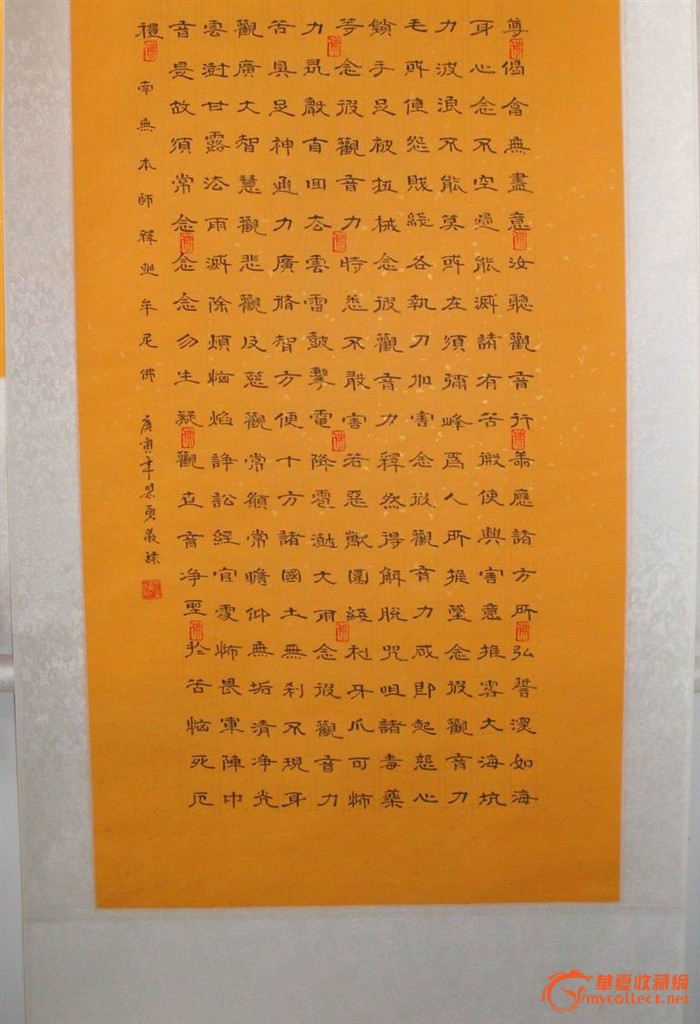 尊偈答無盡意汝聽觀音行善應諸方所弘誓深如海
身心念不空過能滅諸有苦假使興害意推落大海坑
力波浪不能沒或在須彌峰為人所推墮念彼觀音力
毛或值怨賊繞各執刀加害念彼觀音力咸即起慈心
鎖手足被杻械念彼觀音力釋然得解脫咒咀諸毒藥
等念彼觀音力時悉不敢害若惡獸圍繞利牙爪可怖
力尋聲自回去雲雷鼓掣電降雹澍大雨念彼觀音力
苦具足神通力廣脩智方便十方諸國土無剎不現身
觀廣大智慧觀悲觀及慈觀常願常瞻仰無垢清淨光
雲澍甘露法雨滅除煩惱焰諍訟經官處怖畏軍陣中
音是故須常念念念勿生疑觀世音淨聖於苦惱死厄
禮
南無本師釋迦牟尼佛
庚寅年
華夏收藏網
mycollect.net